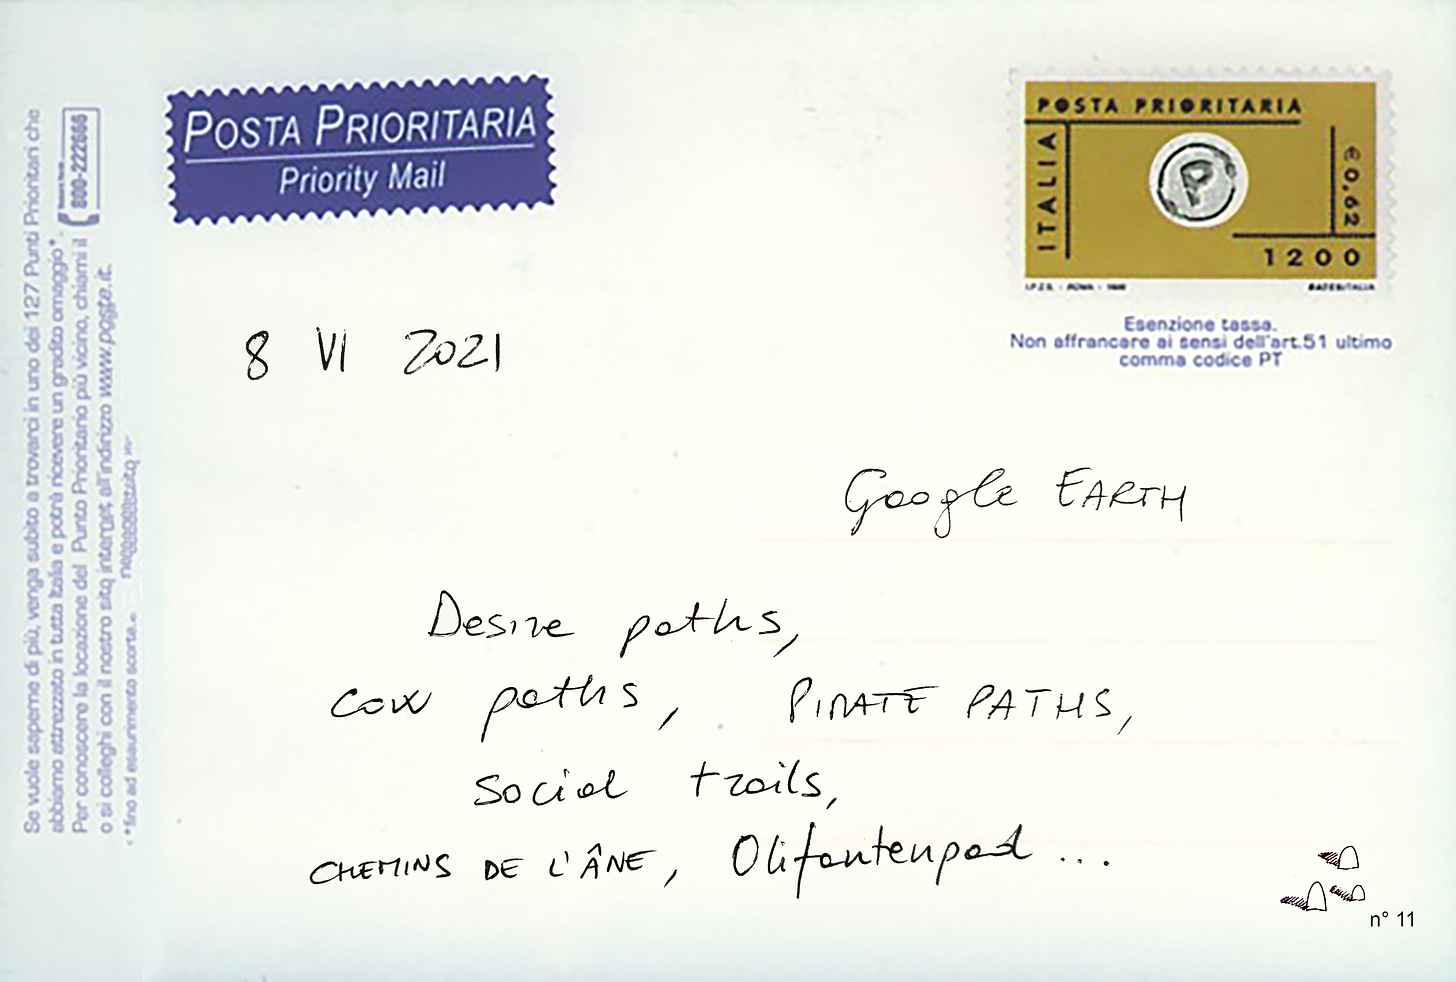 POSTA PRIORITARIA
Priority Mail
POSTA PRIORITARIA
ITALIA
€ 0,62
1200
I.P.Z.S. - ROMA - 1999
Esenzione tassa.
Non affrancare ai sensi dell'art.51 ultimo
comma codice PT
Se vuole saperne di più, venga subito a trovarci in uno dei 127 Punti Prioritari che
abbiamo attrezzato in tutta Italia e potrà ricevere un gradito omaggio*.
Per conoscere la locazione del Punto Prioritario più vicino, chiami il
800-222666
o si colleghi con il nostro sito internet all'indirizzo www.poste.it.
*fino ad esaurimento scorte.
8 VI 2021
Google EARTH
Desire paths,
cow paths, PIRATE PATHS,
social trails,
CHEMINS DE L'ÂNE, Olifantenpad ...
n° 11